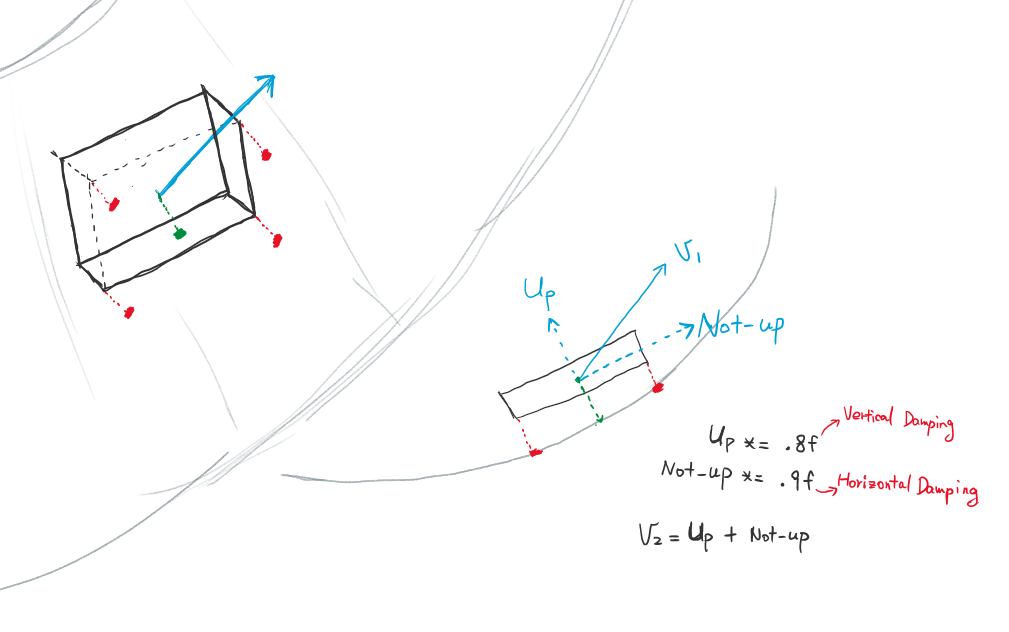 V1
Up
Not-up
Up *= .8f
Vertical Damping
Not-up *= .9f
Horizontal Damping
V2 = Up + Not-up